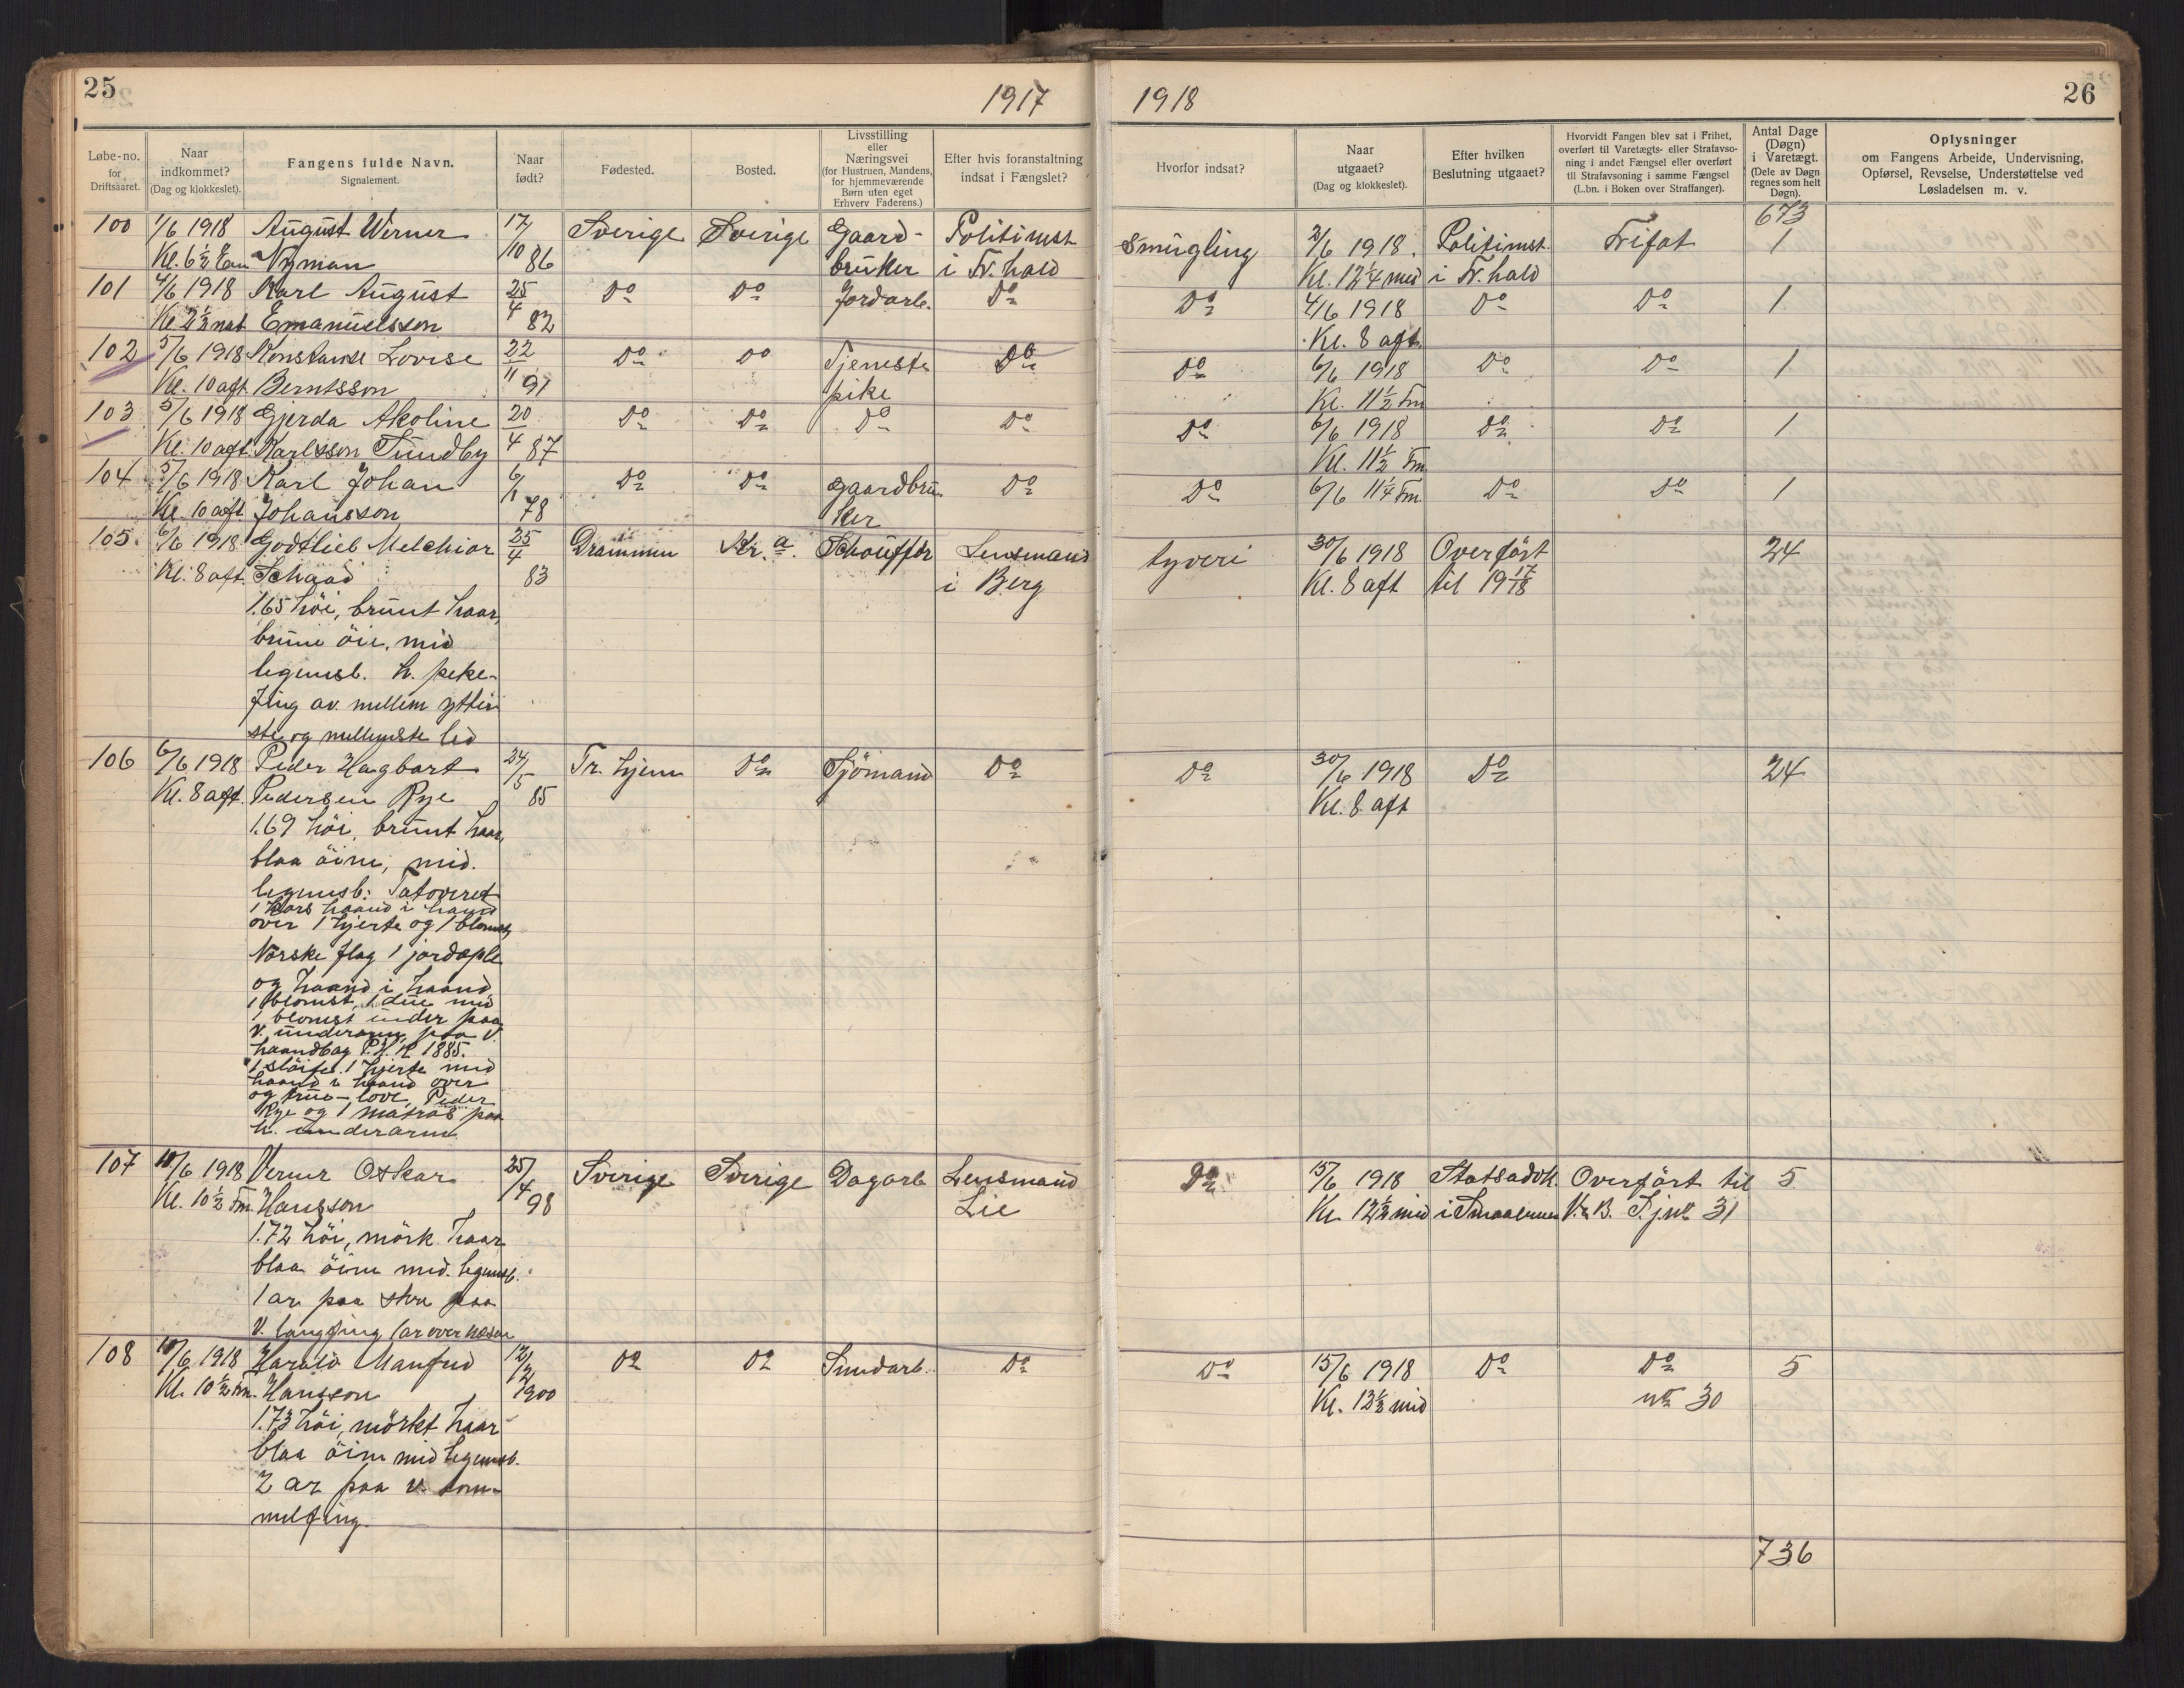 25
1917
Løbe-no. for Driftsaaret.
Naar indkommet? (Dag og klokkeslet).
Fangens fulde Navn. Signalement.
Naar født?
Fødested.
Bosted.
Livsstilling eller Næringsvei (for Hustruen, Mandens, for hjemmeværende Børn uten eget Erhverv Faderens.)
Efter hvis foranstaltning indsat i Fængslet?
100 1/6 1918 August Werner 17/10 86 Sverige Sverige Gaard- Politimst
Kl. 6½ Em Nyman bruker i Fr.hald
101 4/6 1918 Karl August 25/4 82 Do Do Jordarb. Do
Kl 2½ nat Emanuelsson
102 5/6 1918 Konstanse Lovise 22/11 91 Do Do Tjeneste Do
Kl. 10 aft Berntsson pike
103 5/6 1918 Gjerda Akoline 20/4 87 Do Do Do Do
Kl. 10 aft. Karlsson Sundby
104 5/6 1918 Karl Johan 6/1 78 Do Do gaardbru- Do
Kl. 10 aft Johansson ker
105. 6/6 1918 Godtlieb Melchior 25/4 83 Drammen Kr.a. Schouffør Lensmand
Kl. 8 aft. Schaad i Berg
1.65 höi, brunt haar,
brune öie, mid
legemsb. h. peke-
fing av. mellem ytter
ste og mellemste led
106 6/6 1918 Peder Hagbart 24/5 85 Tr. hjem Do Sjömand Do
Kl. 8 aft. Pedersen Rye
1.69 höi, brunt haar,
blaa öine, mid.
legemsb: Tatoveret
1 kors haand i haand
over 1 hjerte og 1 blomst,
Norske flag 1 jordæple
og haand i haand
1 blomst, 1 due med
1 blomst under paa
v. underarm, paa v.
haandbag P.H.R 1885.
1 slöife. 1 hjerte med
haand i haand over
og true-love, Peder
Rye og 1 matros paa
h. underarm
107 10/6 1918 Verner Oskar 25/4 98 Sverige Sverige Dagarb Lensmand
Kl. 10½ Fm. Hansson Lie
1.72 höi, mörk haar
blaa öine mid. legemsb.
1 ar paa skra paa
V. langfing 1 ar over næsen
108 10/6 1918 Harald Manfred 12/2 1900 Do Do Smedarb. Do
Kl. 10½ Fm. Hansson
1.73 höi, mörkt haar
blaa öine mid legemsb.
2 ar paa v. tom-
melfing
1918
26
Hvorfor indsat?
Naar utgaaet? (Dag og klokkeslet).
Efter hvilken Beslutning utgaaet?
Hvorvidt Fangen blev sat i Frihet, overført til Varetægts- eller Strafavso-ning i andet Fængsel eller overført til Strafavsoning i samme Fængsel (L.bn. i Boken over Straffanger).
Antal Dage (Døgn) i Varetægt. (Dele av Døgn regnes som helt Døgn).
Oplysninger om Fangens Arbeide, Undervisning, Opførsel, Revselse, Understøttelse ved Løsladelsen m. v.
673
Smugling 2/6 1918. Politimst. Frifat 1
Kl. 12¼ mid i Fr.hald
Do 4/6 1918 Do Do 1
Kl. 8 aft.
Do 6/6 1918 Do Do 1
Kl. 11½ Fm
Do 6/6 1918 Do Do 1
Kl. 11½ Fm
Do 6/6 11¼ Fm Do Do 1
tyveri 30/6 1918 Overfört 24
Kl. 8 aft til 19 17/18
Do 30/6 1918 Do 24
Kl. 8 aft
Do 15/6 1918 Statsadvk. Overfört til 5
Kl. 12½ mid i Smaalenene V. & B. Fj. no 31
Do 15/6 1918 Do Do 5
Kl. 12½ mid no 30
736